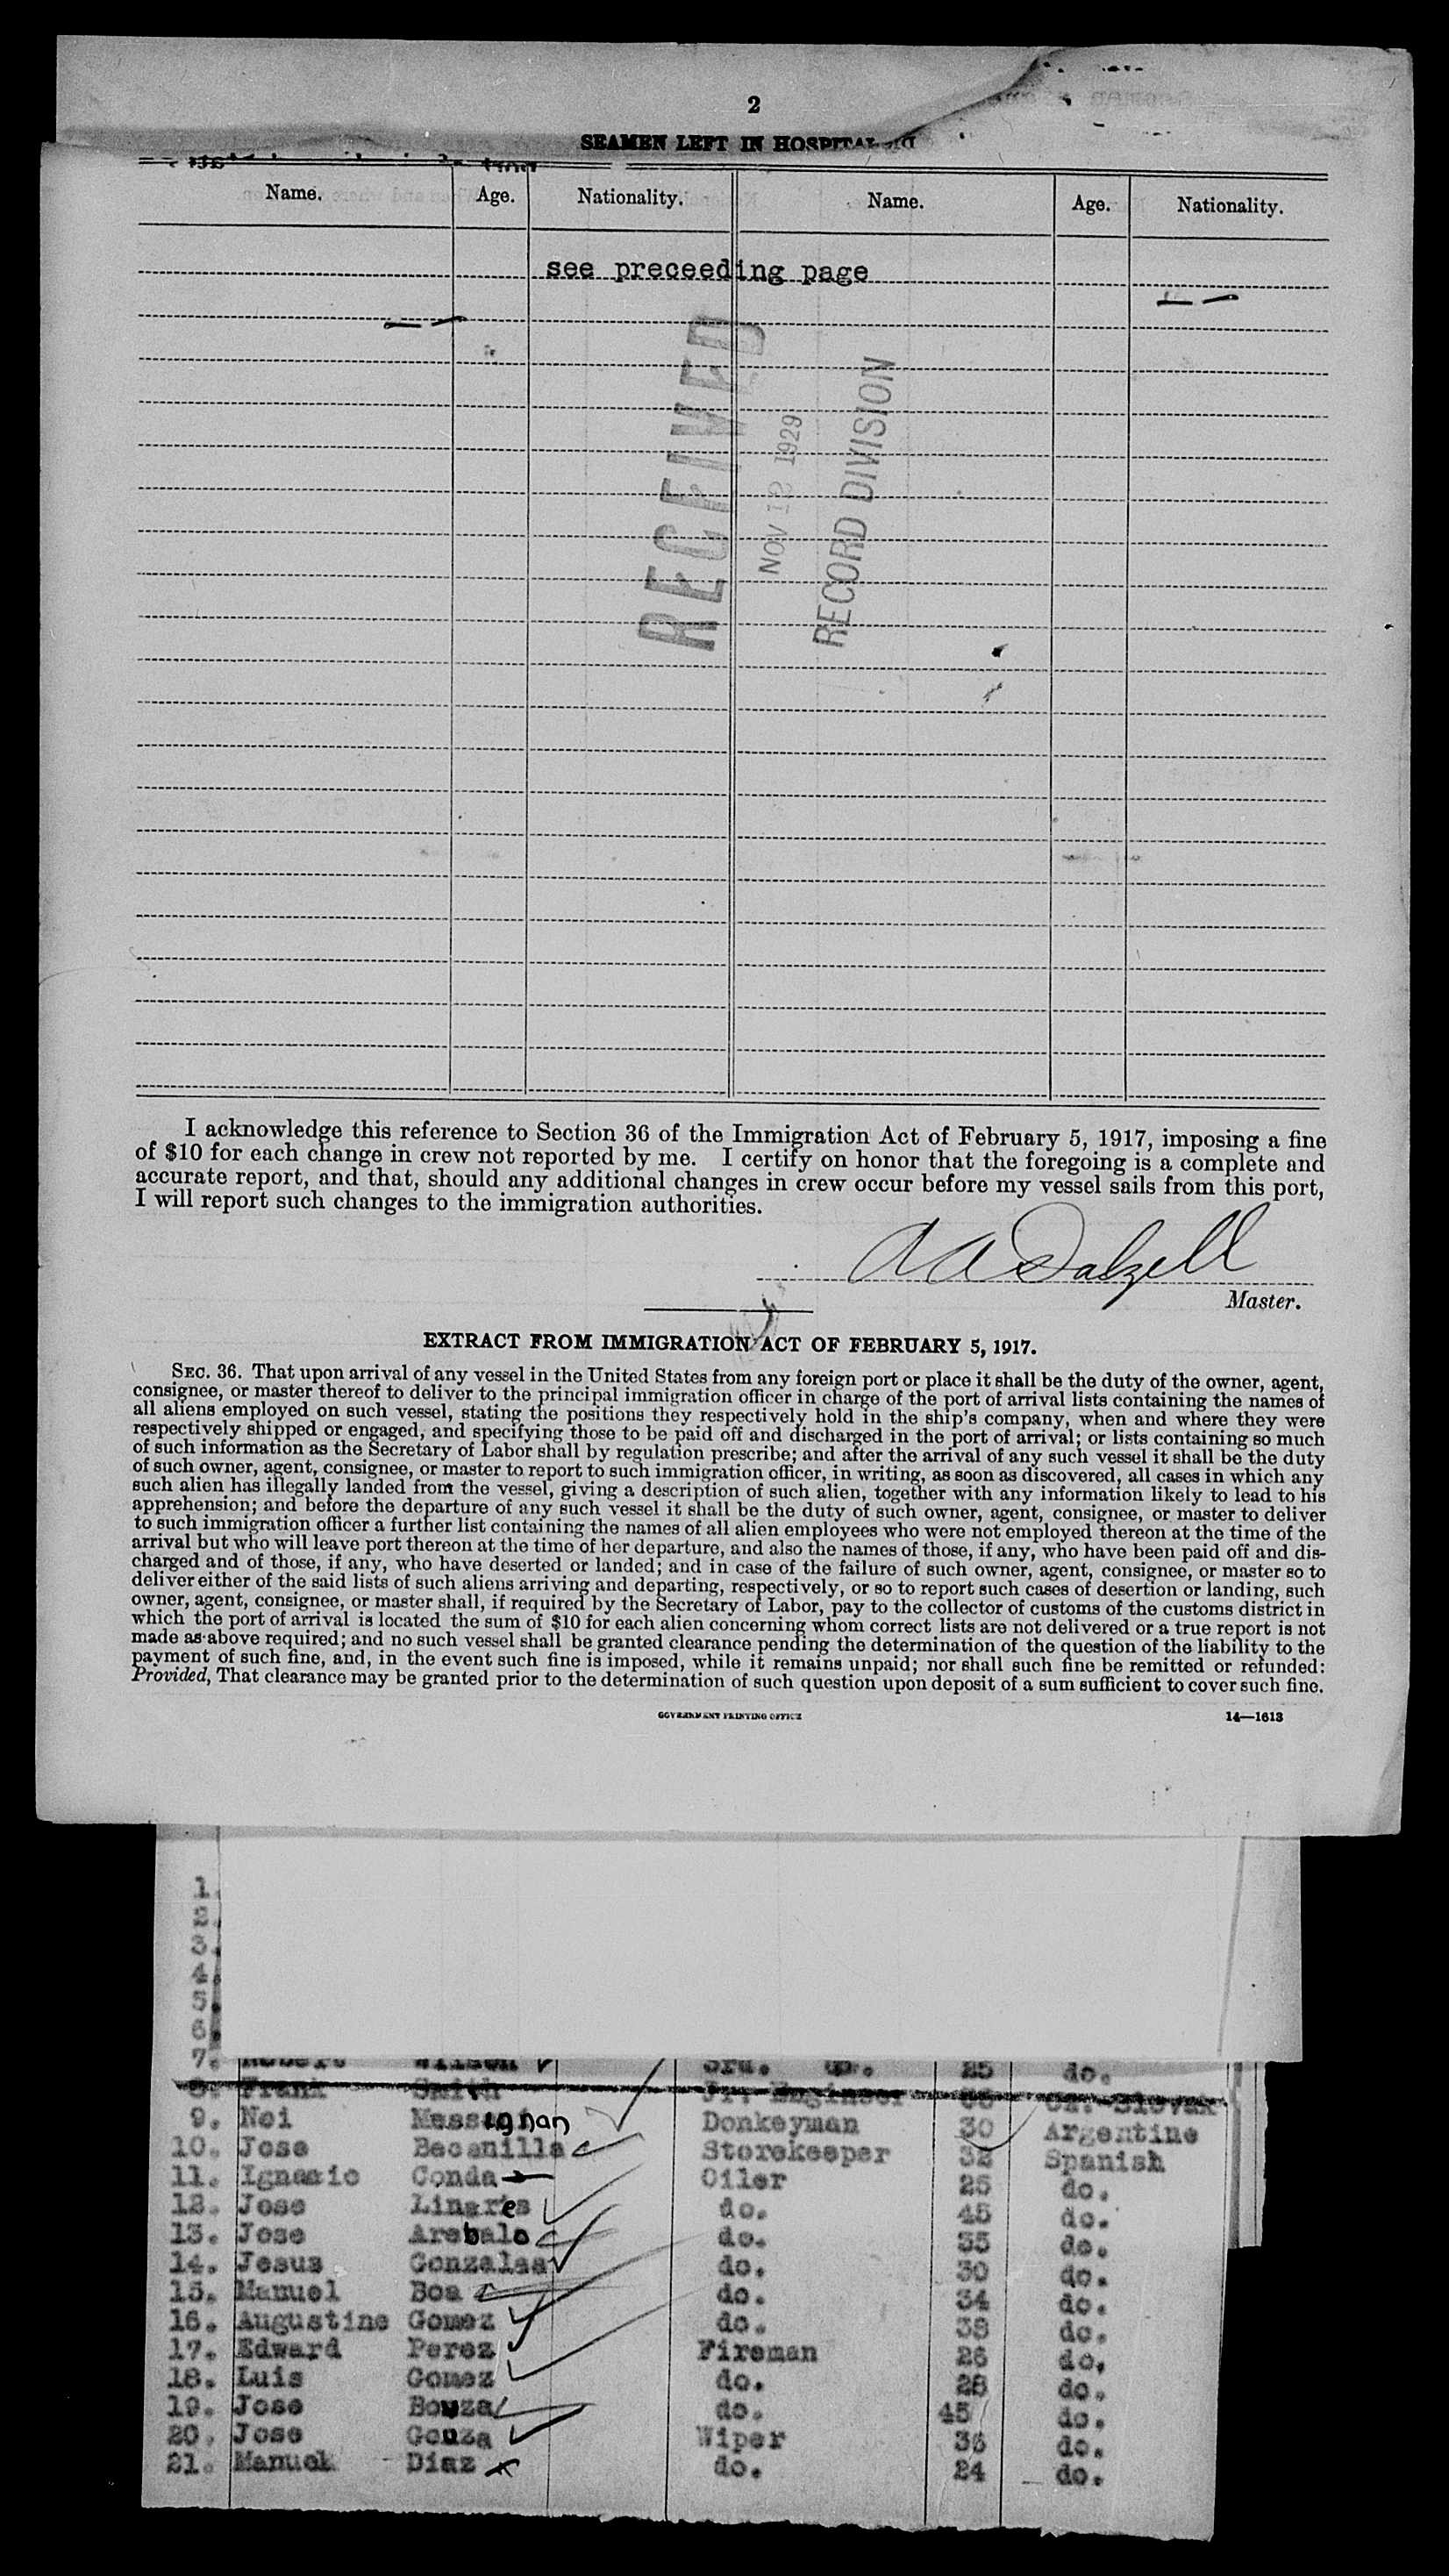 2
SEAMEN LEFT IN HOSPITAL
Name. Age. Nationality. Name. Age. Nationality.
see preceeding page
RECEIVED
NOV 12 1929
RECORD DIVISION
I acknowledge this reference to Section 36 of the Immigration Act of February 5, 1917, imposing a fine
of $10 for each change in crew not reported by me. I certify on honor that the foregoing is a complete and
accurate report, and that, should any additional changes in crew occur before my vessel sails from this port,
I will report such changes to the immigration authorities.
A A Dalzell
Master.
EXTRACT FROM IMMIGRATION ACT OF FEBRUARY 5, 1917.
SEC. 36. That upon arrival of any vessel in the United States from any foreign port or place it shall be the duty of the owner, agent,
consignee, or master thereof to deliver to the principal immigration officer in charge of the port of arrival lists containing the names of
all aliens employed on such vessel, stating the positions they respectively hold in the ship's company, when and where they were
respectively shipped or engaged, and specifying those to be paid off and discharged in the port of arrival; or lists containing so much
of such information as the Secretary of Labor shall by regulation prescribe; and after the arrival of any such vessel it shall be the duty
of such owner, agent, consignee, or master to report to such immigration officer, in writing, as soon as discovered, all cases in which any
such alien has illegally landed from the vessel, giving a description of such alien, together with any information likely to lead to his
apprehension; and before the departure of any such vessel it shall be the duty of such owner, agent, consignee, or master to deliver
to such immigration officer a further list containing the names of all alien employees who were not employed thereon at the time of the
arrival but who will leave port thereon at the time of her departure, and also the names of those, if any, who have been paid off and dis-
charged and of those, if any, who have deserted or landed; and in case of the failure of such owner, agent, consignee, or master so to
deliver either of the said lists of such aliens arriving and departing, respectively, or so to report such cases of desertion or landing, such
owner, agent, consignee, or master shall, if required by the Secretary of Labor, pay to the collector of customs of the customs district in
which the port of arrival is located the sum of $10 for each alien concerning whom correct lists are not delivered or a true report is not
made as above required; and no such vessel shall be granted clearance pending the determination of the question of the liability to the
payment of such fine, and, in the event such fine is imposed, while it remains unpaid; nor shall such fine be remitted or refunded:
Provided, That clearance may be granted prior to the determination of such question upon deposit of a sum sufficient to cover such fine.
GOVERNMENT PRINTING OFFICE 14—1613
1.
2.
3.
4.
5.
6.
7. Robert Wilson 3rd. do. 25 do.
8. Frank Smith Jr. Engineer
9. Noi Donkeyman 30 Argentine
10. Jose Becanilla Storekeeper 32 Spanish
11. Ignacio Conda Oiler 25 do.
12. Jose Linares do. 45 do.
13. Jose Arebalo do. 35 do.
14. Jesus Gonzales do. 30 do.
15. Manuel Boa do. 34 do.
16. Augustine Gomez do. 38 do.
17. Edward Perez Fireman 26 do.
18. Luis Gomez do. 28 do.
19. Jose Bouza do. 45 do.
20. Jose Gouza Wiper 36 do.
21. Manuel Diaz do. 24 do.